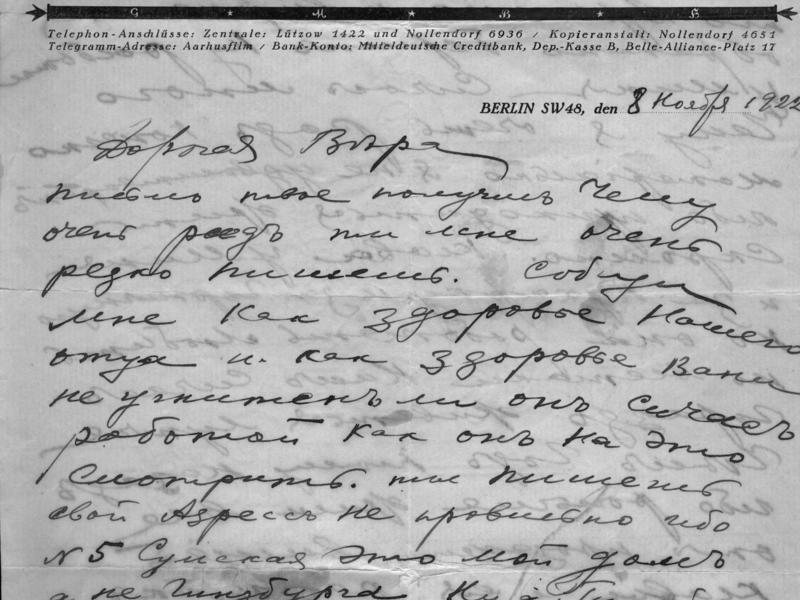 G * M * B * H
Telephon-Anschlüsse: Zentrale: Lützow 1422 und Nollendorf 6936 / Kopieranstalt: Nollendorf 4651
Telegramm-Adresse: Aarhusfilm / Bank-Konto: Mitteldeutsche Creditbank, Dep.-Kasse B, Belle-Alliance-Platz 17
BERLIN SW48, den 8 Ноября 1922
Дорогая Вѣра
письмо твое получилъ Чему
очень радъ ты мне очень
редко пишешь.
мне Как здоровье Нашего
отца и как здоровье Вани
не ли онъ Сичасъ
работой Как онъ На это
Смотритъ. ты пишешь
свой Адрессъ Не правильно ибо
N 5 Сумская Это мой домъ
а не Гинзбурга